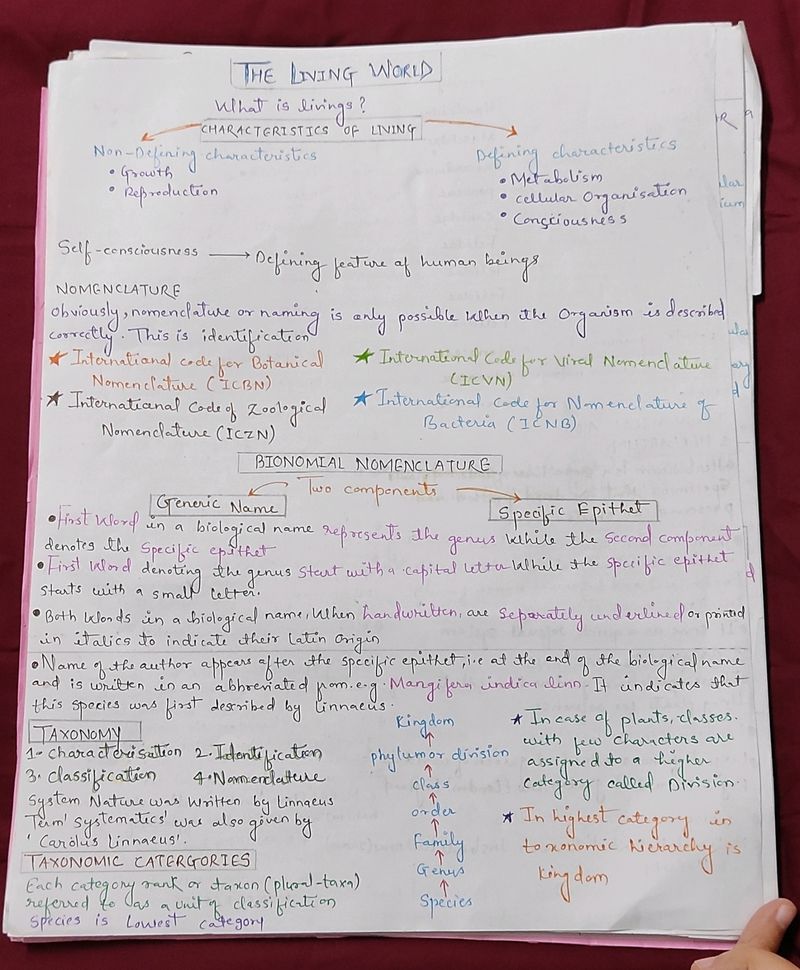 THE LIVING WORLD
What is livings?
CHARACTERISTICS OF LIVING
Non-Defining characteristics
• Growth
• Reproduction
Defining characteristics
• Metabolism
• cellular Organisation
• Consciousness
Self-consciousness → Defining feature of human beings
NOMENCLATURE
Obviously, nomenclature or naming is only possible when the Organism is described
correctly. This is identification
★ International code for Botanical
Nomenclature (ICBN)
★ International Code of Zoological
Nomenclature (ICZN)
★ International Code for Viral Nomenclature
(ICVN)
★ International Code for Nomenclature of
Bacteria (ICNB)
BIONOMIAL NOMENCLATURE
Two components
Generic Name
Specific Epithet
• First Word in a biological name represents the genus while the Second component
denotes the Specific epithet
• First Word denoting the genus Start with a capital letter While the specific epithet
starts with a small letter.
• Both Words in a biological name, When handwritten, are Separately underlined or printed
in italics to indicate their Latin Origin
• Name of the author appears after the specific epithet, i.e at the end of the biological name
and is written in an abbreviated from. e.g. Mangifera indica linn. It indicates that
this species was first described by linnaeus.
TAXONOMY
1. characterisation 2. Identification
3. Classification 4. Nomenclature
System Nature was written by Linnaeus
Term 'Systematics' was also given by
'Carolus Linnaeus'.
TAXONOMIC CATERGORIES
Each category rank or taxon (plural-taxa)
referred to as a unit of classification
Species is Lowest category
Kingdom
↑
phylum or division
↑
class
↑
order
↑
Family
↑
Genus
↑
Species
★ In case of plants, classes.
with few characters are
assigned to a higher
category called Division.
★ In highest category in
toxonomic hierarchy is
kingdom